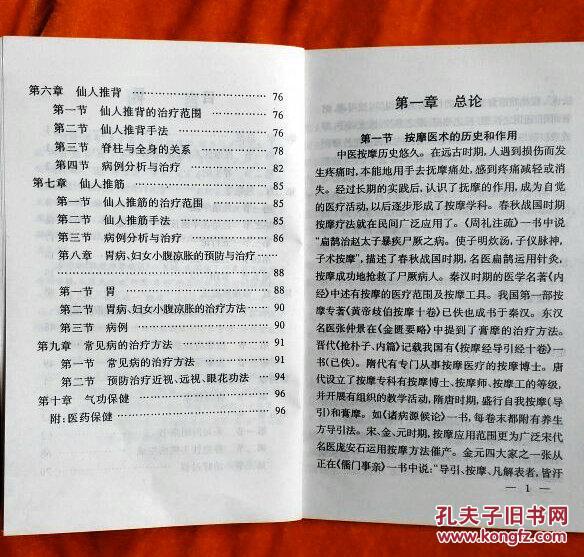 第六章　仙人推背 …………………… 76
第一节　仙人推背的治疗范围 ………… 76
第二节　仙人推背手法 ……………… 76
第三节　脊柱与全身的关系 ………… 78
第四节　病例分析与治疗 …………… 82
第七章　仙人推筋 …………………… 85
第一节　仙人推筋的治疗范围 ………… 85
第二节　仙人推筋手法 ……………… 85
第三节　病例分析与治疗 …………… 86
第八章　胃病、妇女小腹凉胀的预防与治疗 ……
…………………………………… 88
第一节　胃 ………………………… 88
第二节　胃病、妇女小腹凉胀的治疗方法 … 90
第三节　病例 ……………………… 90
第九章　常见病的治疗方法 ………… 91
第一节　常见病的治疗方法 ………… 91
第二节　预防治疗近视、远视、眼花功法 … 94
第十章　气功保健 …………………… 96
附:医药保健 ………………………… 96
第一章　总论
第一节　按摩医术的历史和作用
中医按摩历史悠久。在远古时期,人遇到损伤而发
生疼痛时,本能地用手去抚摩痛处,感到疼痛减轻或消
失。经过长期的实践后,认识了抚摩的作用,成为自觉
的医疗活动,以后逐步形成了按摩学科。春秋战国时期
按摩疗法就在民间广泛应用了。《周礼注疏》一书中说
“扁鹊治赵太子暴疾尸厥之病。使子明炊汤,子仪脉神,
子术按摩”,描述了春秋战国时期,名医扁鹊运用针灸、
按摩成功地抢救了尸厥病人。秦汉时期的医学名著《内
经》中述有按摩的医疗范围及按摩工具。我国第一部按
摩专著《黄帝歧伯按摩十卷》已佚也成书于秦汉。东汉
名医张仲景在《金匮要略》中提到了膏摩的治疗方法。
晋代《抢朴子、内篇》记载我国有《按摩经导引经十卷》一
书(已佚)。隋代有专门从事按摩医疗的按摩博士。唐
代设立了按摩专科有按摩博士、按摩师、按摩工的等级,
并开展有组织的教学活动,隋唐时期,盛行自我按摩(导
引)和膏摩。如《诸病源候论》一书,每卷末都附有养生
方导引法。宋、金、元时期,按摩应用范围更为广泛宋代
名医庞安石运用按摩方法催产。金元四大家之一张从
正在《儒门事亲》一书中说:“导引、按摩、凡解表者,皆汗
— 1 —
孔夫子旧书网
www.kongfz.com